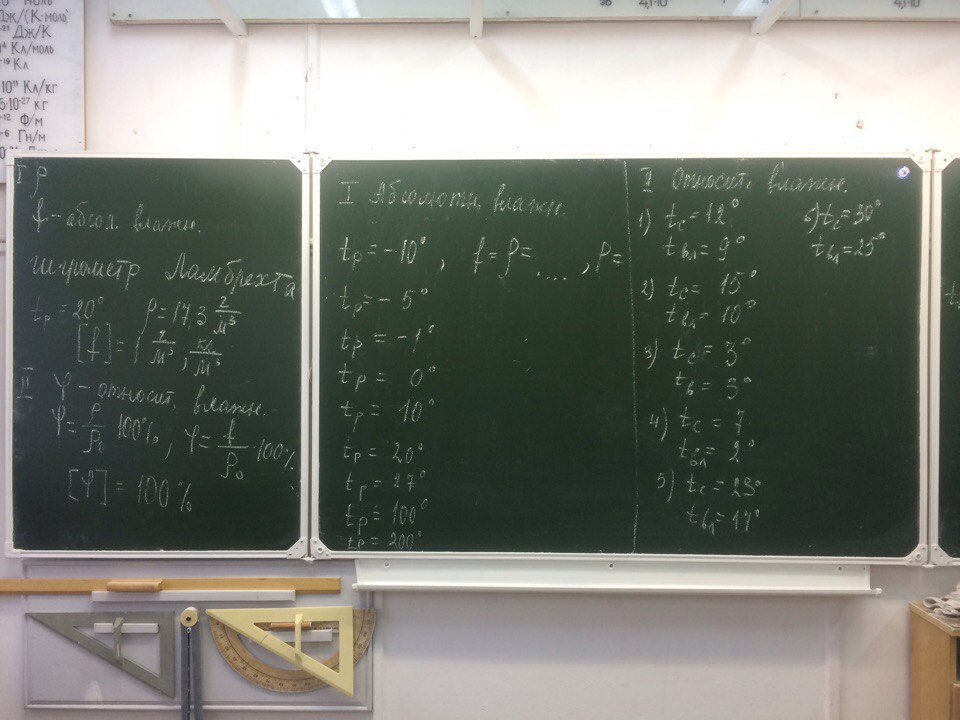 Дж/(К·моль)
Дж/К
Кл/моль
Кл
Кл/кг
кг
Ф/м
Гн/м
I ρ
f - абсол. влажн.
гигрометр Ламбрехта
tр = 20° ρ = 17,3 г/м³
[f] = 1 г/м³, кг/м³
II φ - относит. влажн.
φ = ρ/ρ₀ 100%, φ = f/ρ₀ · 100%
[φ] = 100%
I Абсолютн. влажн.
tр = -10°, f = ρ = ...., P =
tр = -5°
tр = -1°
tр = 0°
tр = 10°
tр = 20°
tр = 27°
tр = 100°
tр = 200°
II Относит. влажн.
1) tс = 12°
tвл = 9°
2) tс = 15°
tвл = 10°
3) tс = 3°
tв = 3°
4) tс = 7
tвл = 2°
5) tс = 23°
tвл = 17°
6) tс = 30°
tвл = 25°